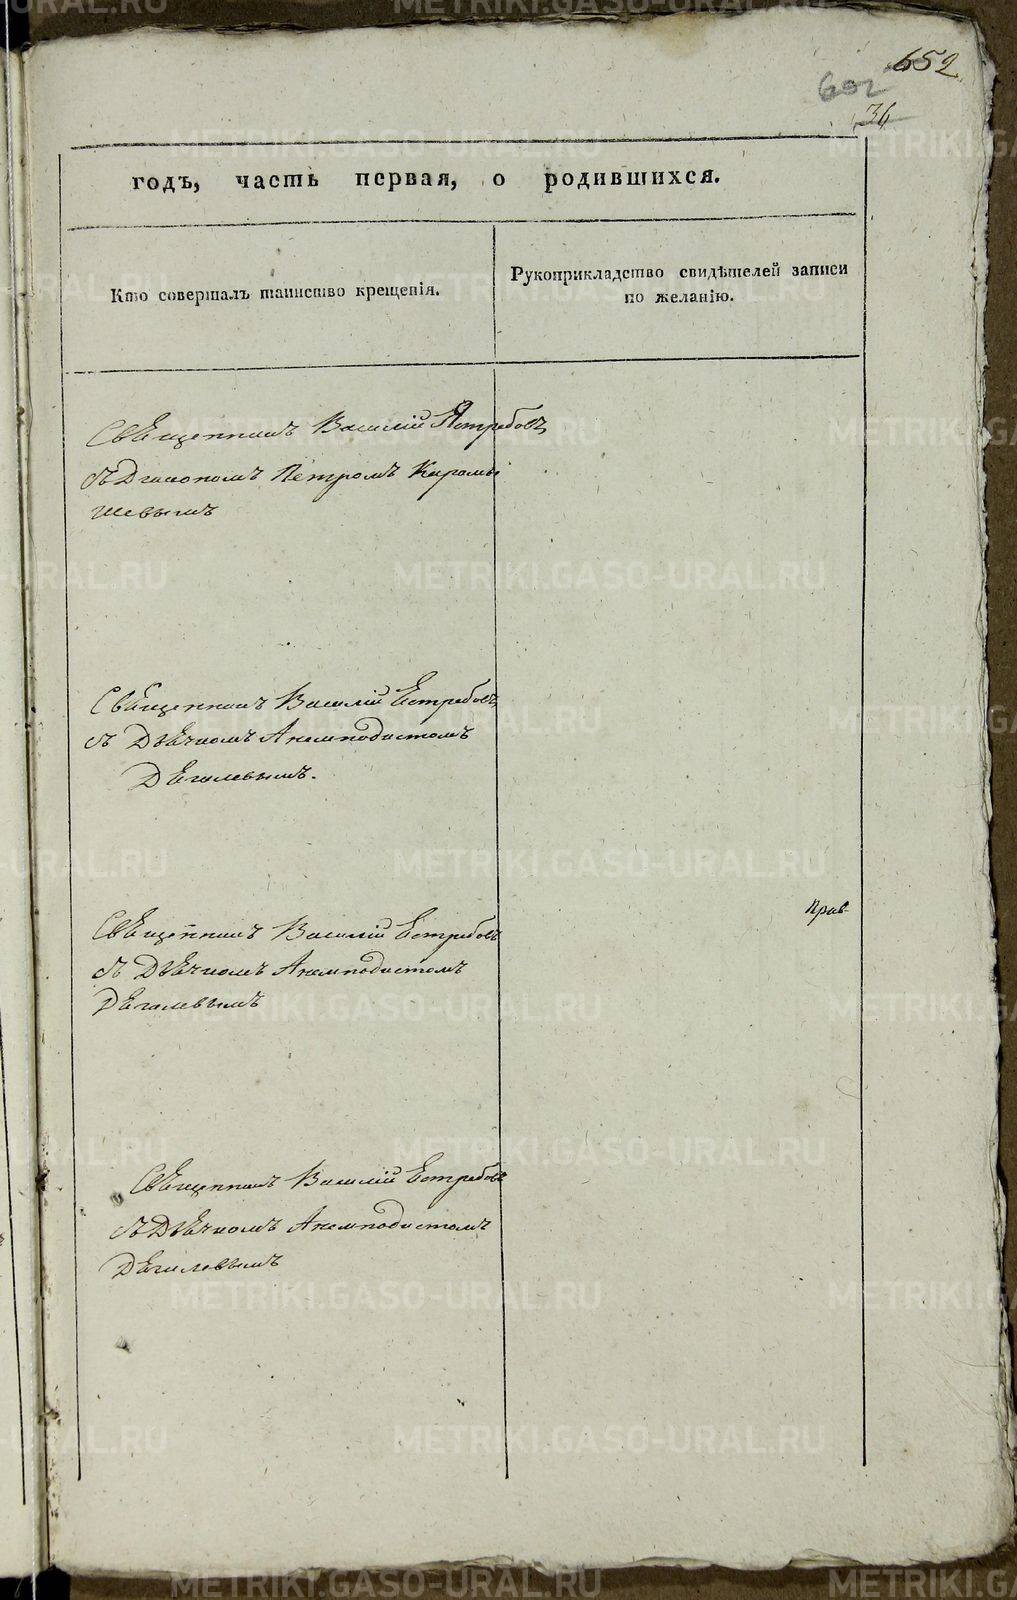 652
602
36
годъ, часть первая, о родившихся.
Кто совершалъ таинство крещенія.
Рукоприкладство свидѣтелей записи
по желанію.
Священникъ Василій Ястребовъ
съ Діакономъ Петромъ Карамы
шевымъ
Свѣщенникъ Василій Естребовъ
съ Дьѣчкомъ Анемподистомъ
Дѣгилевымъ.
Прав
Свѣщенникъ Василій Естребовъ
съ Дьѣчкомъ Анемподистомъ
Дѣгилевымъ
Свѣщенникъ Василій Естребовъ
съ Дьѣчкомъ Анемподистомъ
Дѣгилевымъ
METRIKI.GASO-URAL.RU